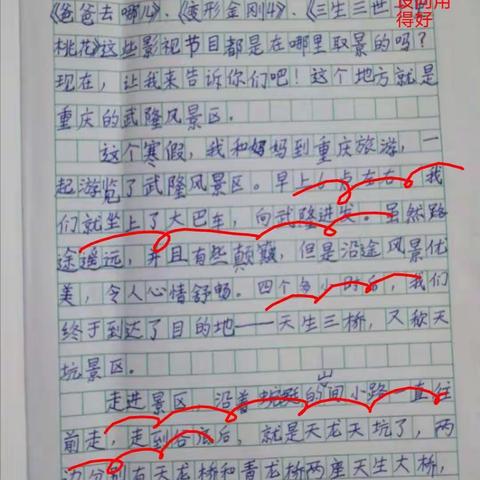 设问用
得好
《爸爸去哪儿》、《变形金刚4》、《三生三世
桃花》这些影视节目都是在哪里取景的吗?
现在,让我来告诉你们吧!这个地方就是
重庆的武隆风景区。
这个寒假,我和妈妈到重庆旅游,一
起游览了武隆风景区。早上6点左右,我
们就坐上了大巴车,向武隆进发。虽然路
途遥远,并且有些颠簸,但是沿途风景优
美,令人心情舒畅。四个多小时后,我们
终于到达了目的地——天生三桥,又称天
坑景区。
走进景区,沿着蜿蜒的山间小路一直往
前走,走到谷底后,就是天龙天坑了,两
边分别有天龙桥和青龙桥两座天生大桥,